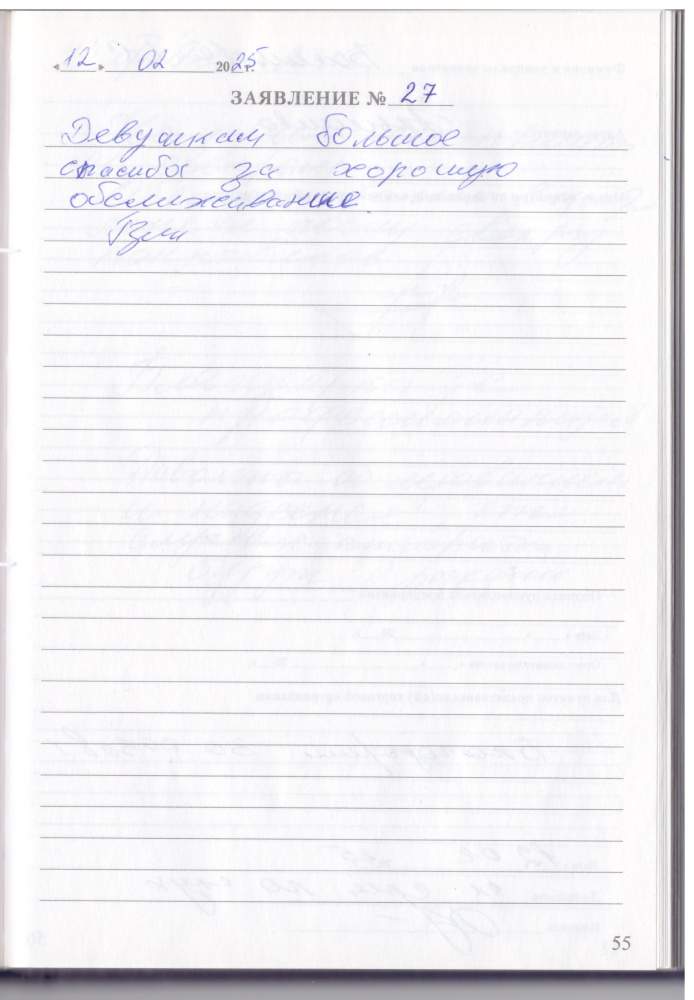 «12» 02 2025 г.
ЗАЯВЛЕНИЕ № 27
Девушкам большое
спасибо за хорошую
обслуживание.
55